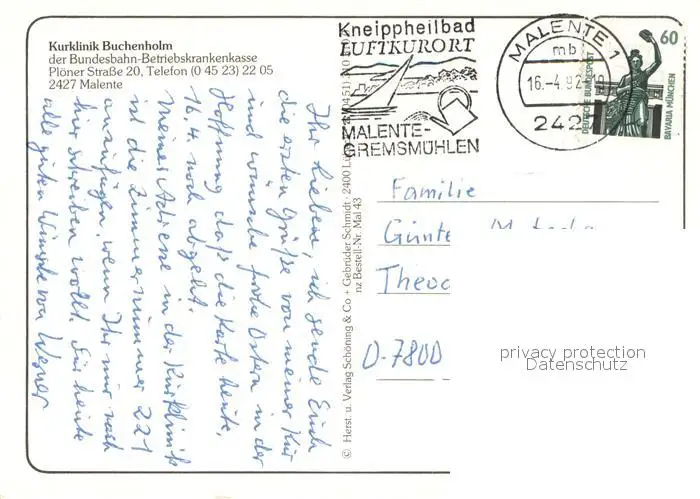 Kurklinik Buchenholm
der Bundesbahn-Betriebskrankenkasse
Plöner Straße 20, Telefon (0 45 23) 22 05
2427 Malente
Kneippheilbad
LUFTKURORT
MALENTE-
GREMSMÜHLEN
MALENTE 1
mb
16.-4.92
242
60
DEUTSCHE BUNDESPOST
BAVARIA MÜNCHEN
Ihr Lieben, ich sende Euch
die ersten Grüße von meiner Kur
und wünsche frohe Ostern in der
Hoffnung, daß die Karte heute,
16.4. noch abgeht.
Meiner Adresse in der Kurklinik
ist die Zimmernummer 221
anzufügen, wenn Ihr mir nach
hier schreiben wollt. Für heute
alle guten Wünsche von Werner
© Herst. u. Verlag Schöning & Co + Gebrüder Schmidt · 2400 Lü
nz Bestell-Nr. Mal 43
Familie
Günte
Theod
D-7800
privacy protection
Datenschutz